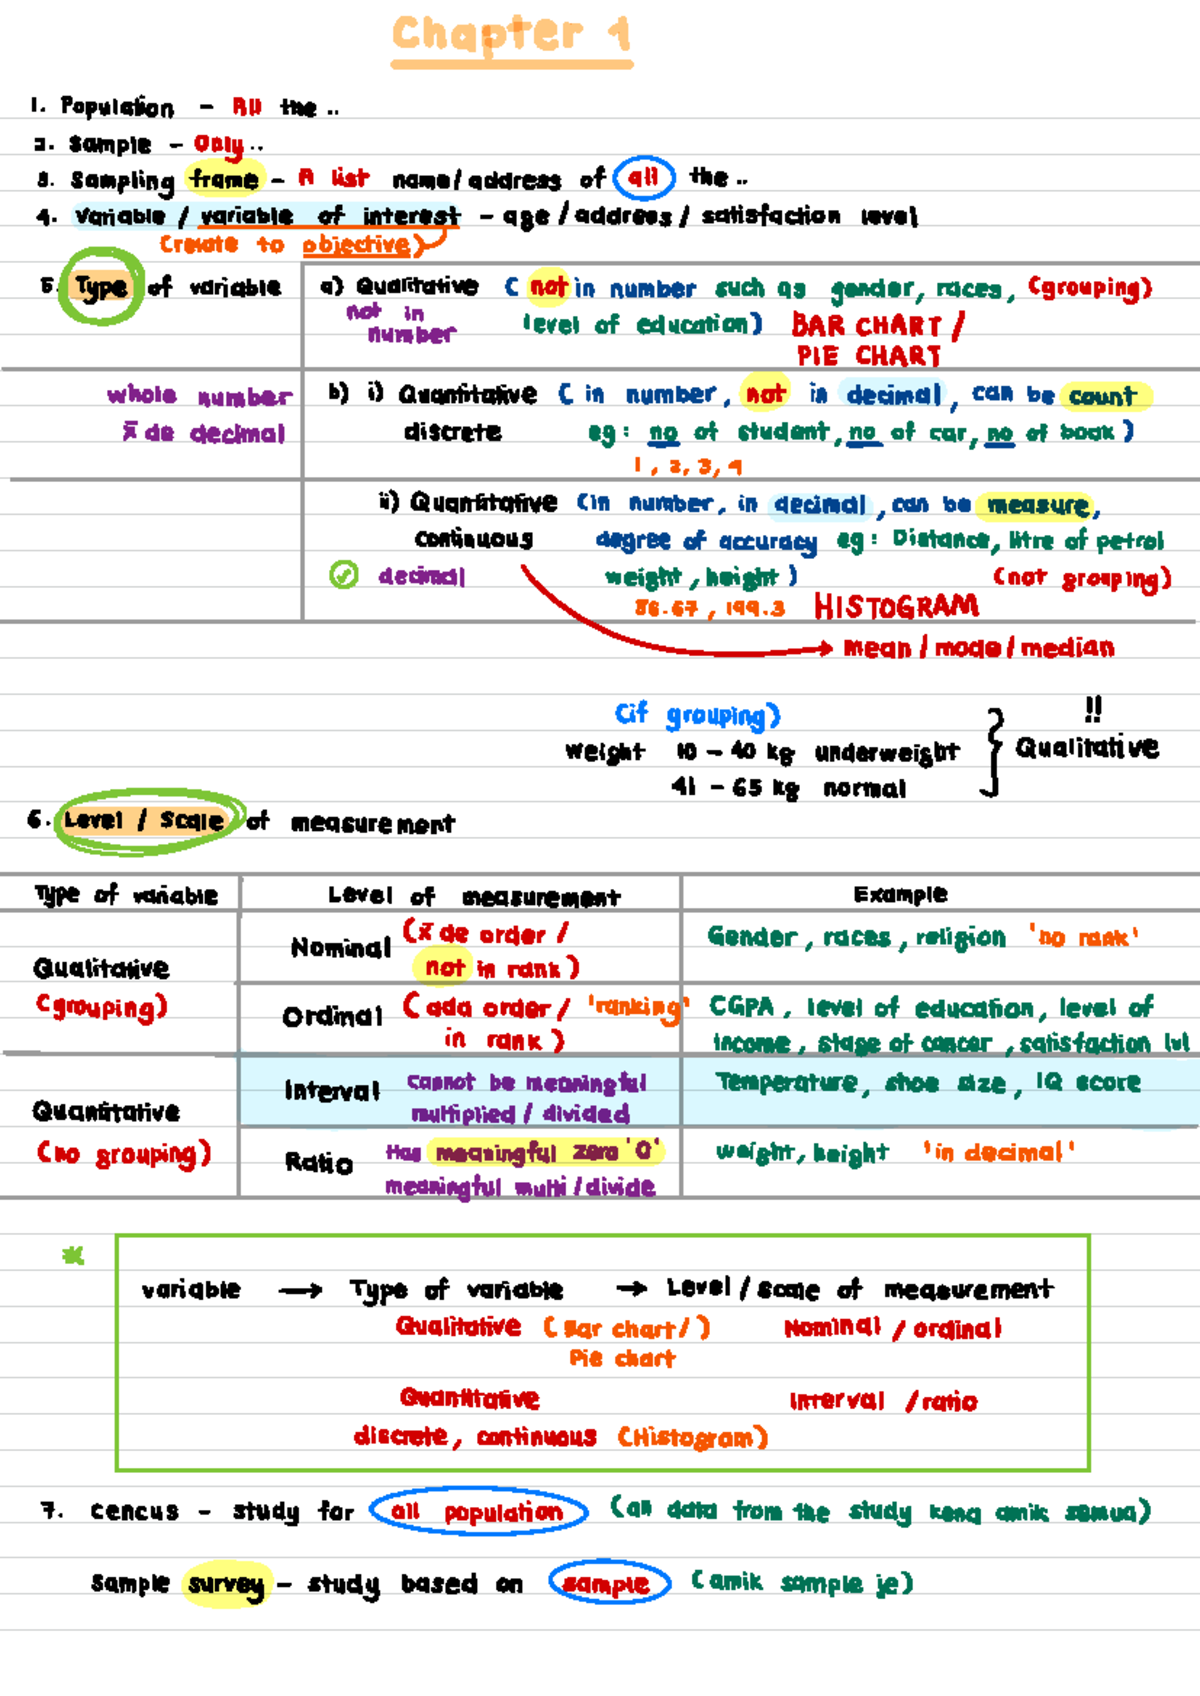 Chapter 1
1. Population - All the ..
2. Sample - Only ..
3. Sampling frame - A list name/address of all the ..
4. Variable / variable of interest - age / address / satisfaction level
(relate to objective)
5. Type of variable
a) Qualitative ( not in number such as gender, races, (grouping)
not in number
level of education) BAR CHART /
PIE CHART
whole number
x̄ de decimal
b) i) Quantitative ( in number, not in decimal, can be count
discrete eg: no of student, no of car, no of book )
1, 2, 3, 4
ii) Quantitative (in number, in decimal, can be measure,
continuous degree of accuracy eg: Distance, litre of petrol
decimal weight, height ) (not grouping)
86.67, 199.3 HISTOGRAM
mean / mode / median
(if grouping) !!
weight 10 - 40 kg underweight } Qualitative
41 - 65 kg normal
6. Level / Scale of measurement
Type of variable Level of measurement Example
Qualitative
(grouping)
Nominal (x̄ de order / not in rank) Gender, races, religion 'no rank'
Ordinal (ada order / 'ranking' CGPA, level of education, level of
in rank ) income, stage of cancer, satisfaction lvl
Quantitative
(no grouping)
Interval cannot be meaningful Temperature, shoe size, IQ score
multiplied / divided
Ratio Has meaningful zero '0' weight, height 'in decimal'
meaningful multi / divide
* variable → Type of variable → Level / scale of measurement
Qualitative ( Bar chart / ) Nominal / ordinal
Pie chart
Quantitative Interval / ratio
discrete, continuous (Histogram)
7. cencus - study for all population (all data from the study kena amik semua)
Sample survey - study based on sample (amik sample je)